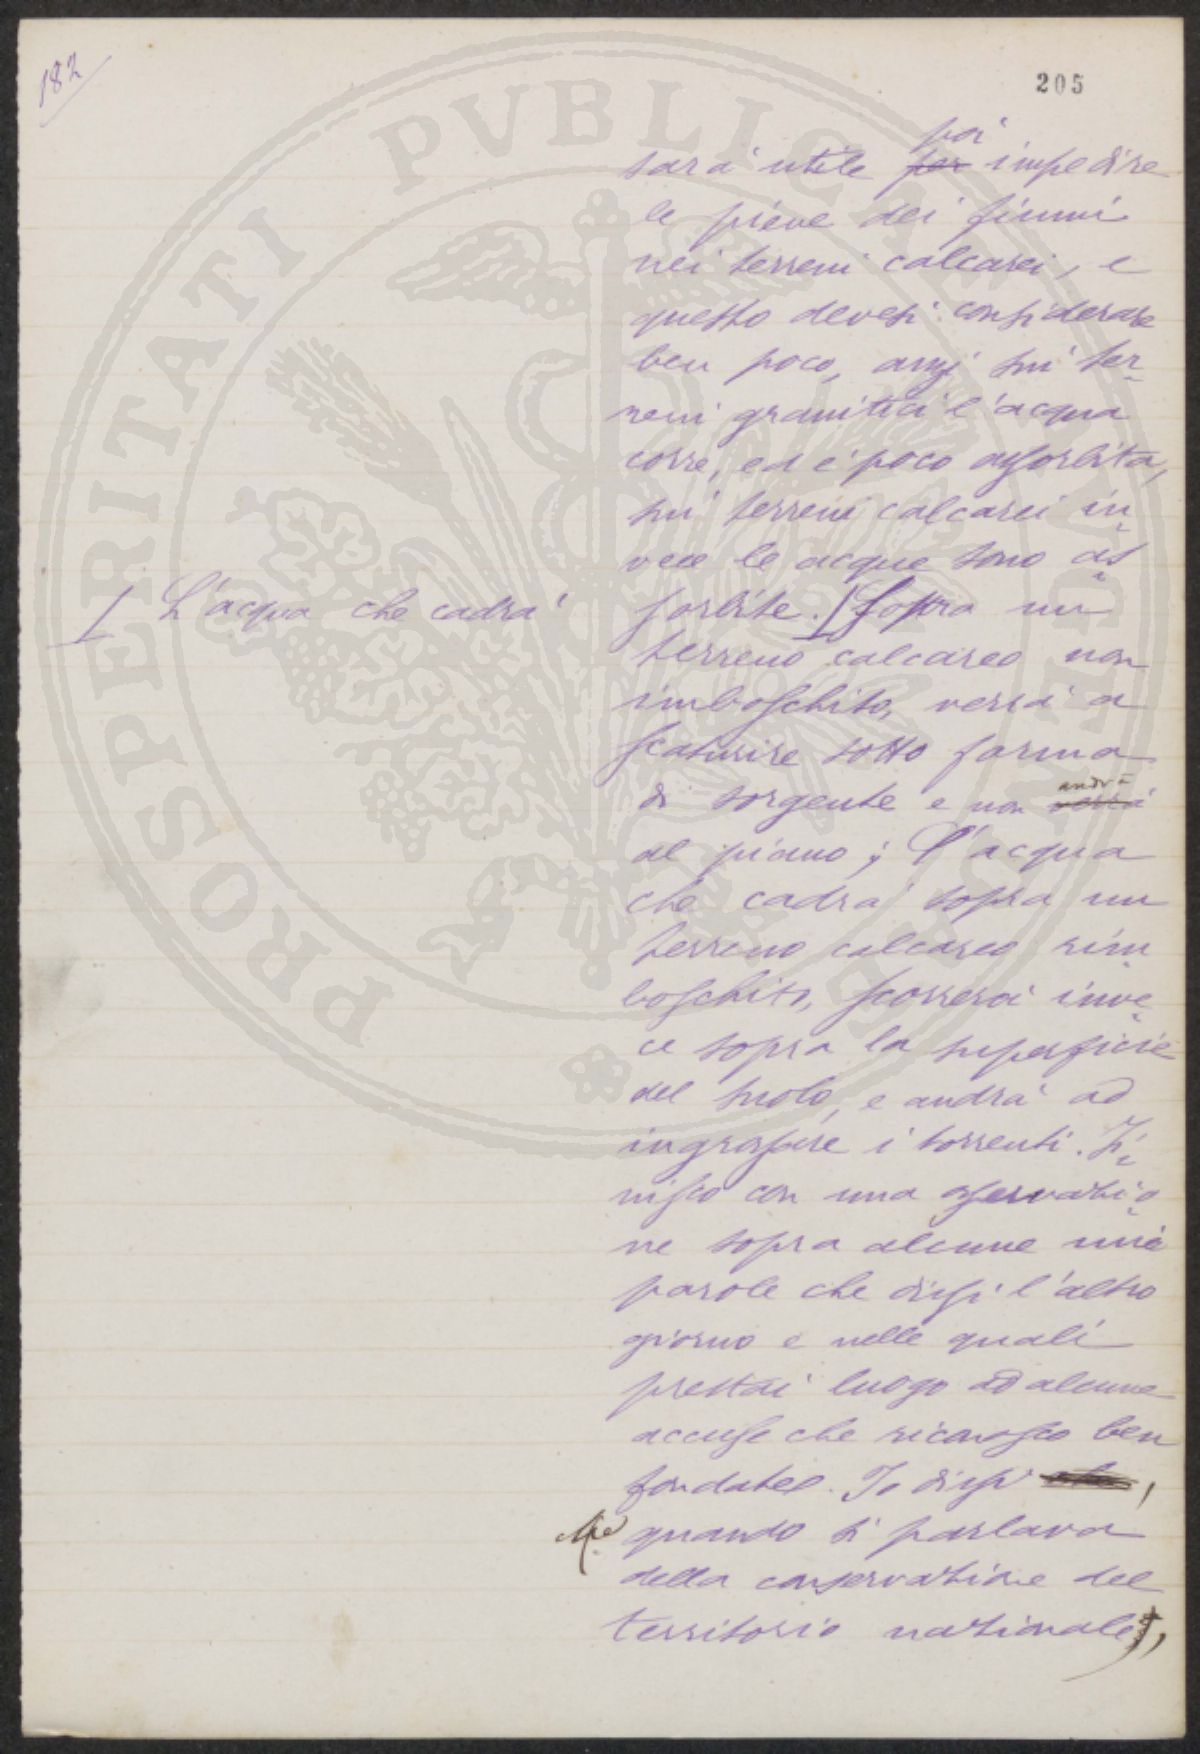 182
205
poi
sarà utile per impedire
le pieve dei fiumi
nei terreni calcarei, e
questo devesi considerare
ben poco, anzi sui ter-
reni granitici l'acqua
corre, ed è poco assorbita,
sui terreni calcarei in-
vece le acque sono as-
sorbite. Sopra un
L'acqua che cadrà
terreno calcareo non
imboschito, verrà a
scaturire sotto forma
andrà
di sorgente e non verrà
al piano; l'acqua
che cadrà sopra un
terreno calcareo rim-
boschito, scorrerà inve-
ce sopra la superficie
del suolo, e andrà ad
ingrossare i torrenti. Fi-
nisco con una osservazio-
ne sopra alcune mie
parole che dissi l'altro
giorno e nelle quali
prestai luogo ad alcune
accuse che riconosco ben
fondate. Io dissi,
quando si parlava
della conservazione del
territorio nazionale,
PROSPERITATI PVBLICAE